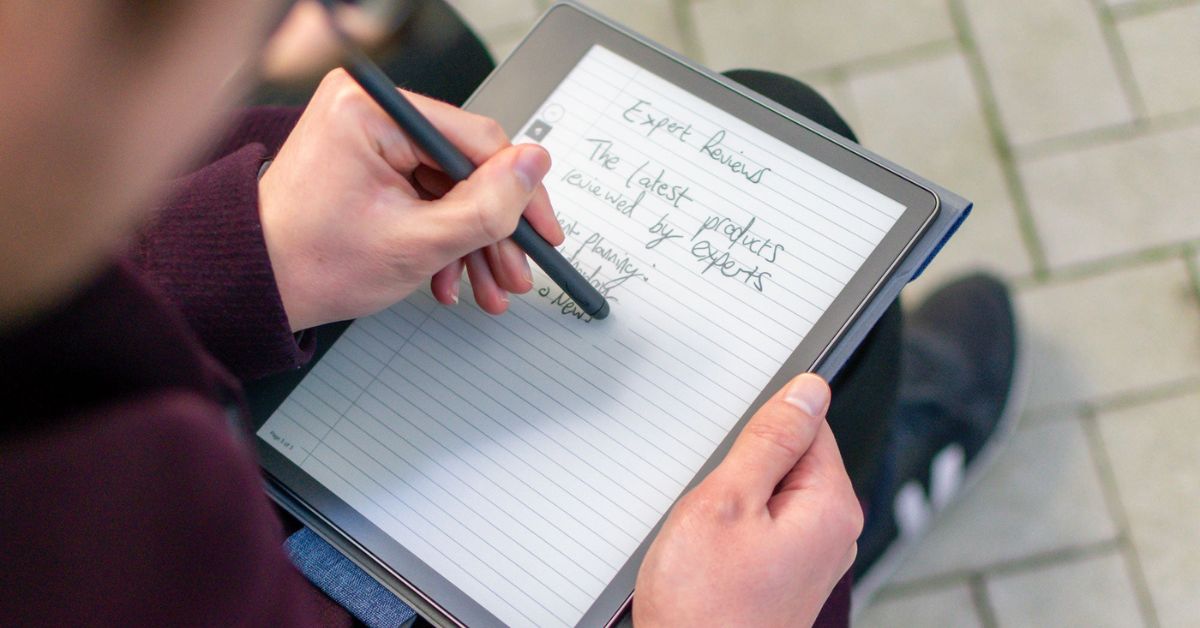 Expert Reviews
The latest products
reviewed by experts
planning.
& News
Page 5 of 5